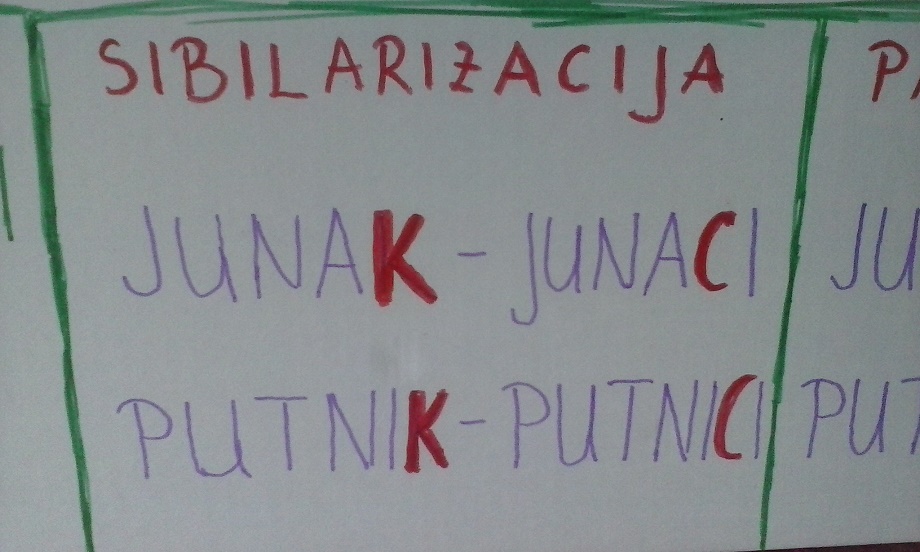 SIBILARIZACIJA
JUNAK - JUNACI
PUTNIK - PUTNICI